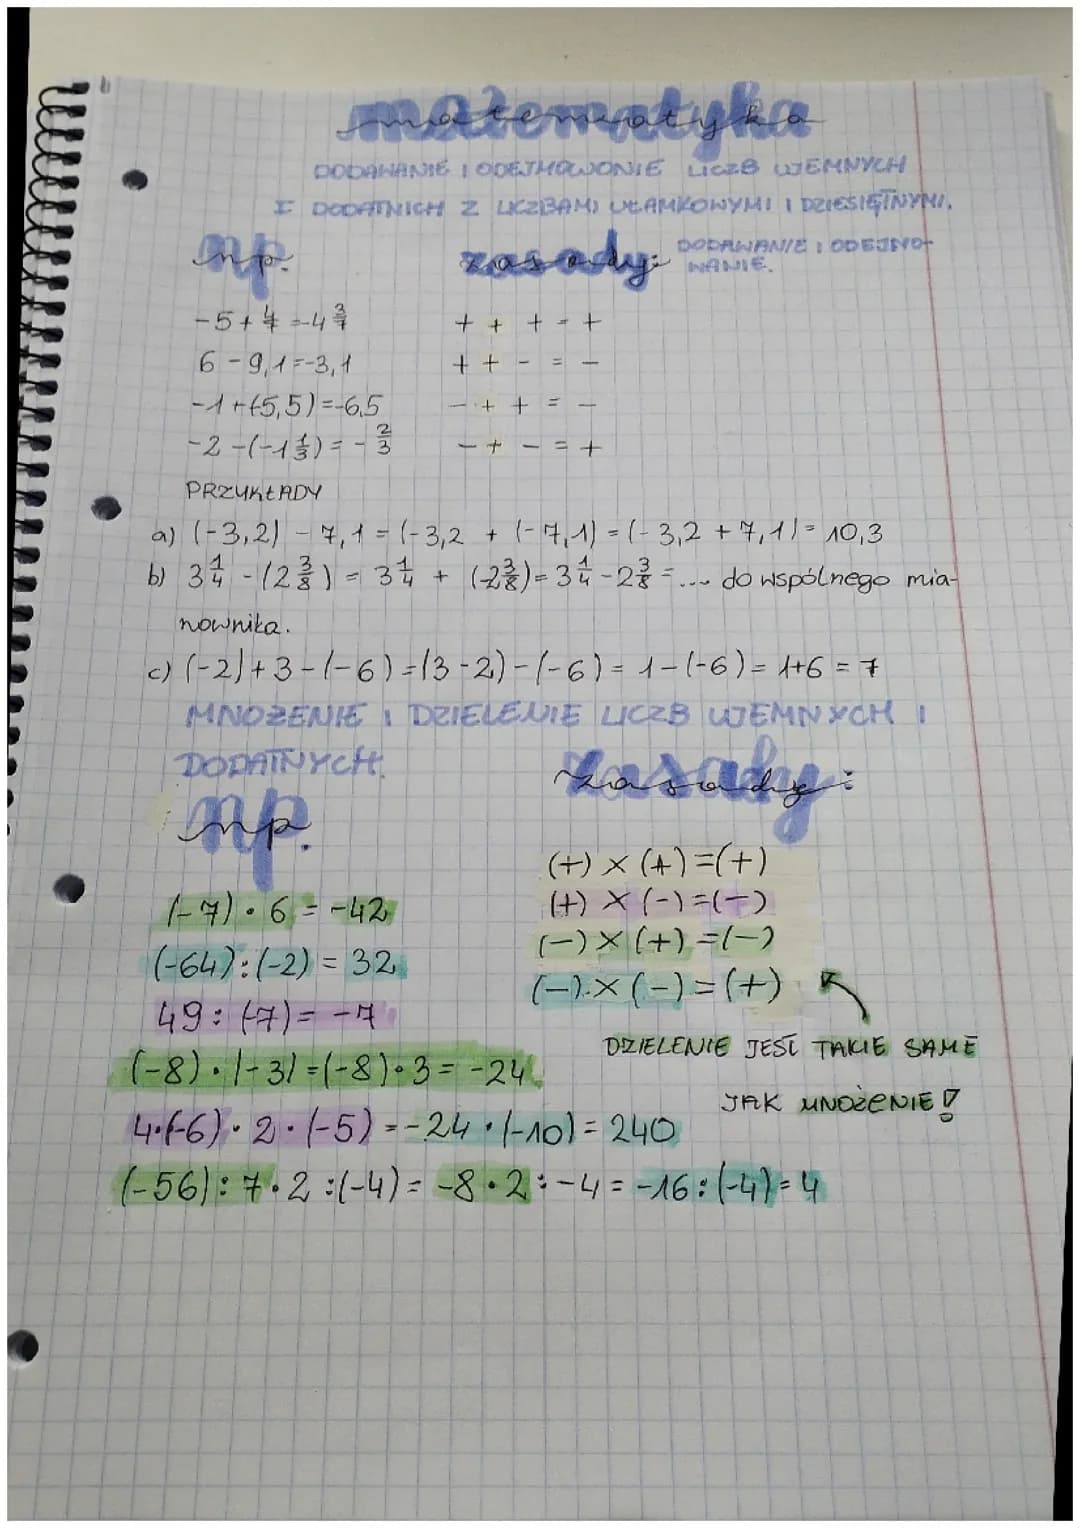 matematyka
DODAWANIE I ODEJMOWONIE LICZB UJEMNYCH
I DODATNICH Z LICZBAMI UŁAMKOWYMI I DZIESIĘTNYMI.
np. zasady: DODAWANIE I ODEJMO-
WANIE.
-5+4/7=-4 3/7 + + + = +
6-9,1=-3,1 + + - = -
-1+(-5,5)=-6,5 - + + = -
-2-(-1 1/3)=-2/3 - + - = +
PRZYKŁADY
a) (-3,2) - 7,1 = (-3,2 + (-7,1) = (-3,2 + 7,1) = 10,3
b) 3 1/4 - (2 3/8) = 3 1/4 + (-2 3/8) = 3 1/4 - 2 3/8 = ... do wspólnego mia-
nownika.
c) (-2)+3-(-6)=(3-2)-(-6)=1-(-6)=1+6=7
MNOŻENIE I DZIELENIE LICZB UJEMNYCH I
DODATNYCH.
np. zasady:
(+) × (+)=(+)
(+) × (-)=(-)
(-) × (+)=(-)
(-).× (-)=(+)
DZIELENIE JEST TAKIE SAME
JAK MNOŻENIE!
(-7)·6=-42
(-64):(-2)=32
49:(-7)=-7
(-8)·|-3|=(-8)·3=-24
4·(-6)·2·(-5)=-24·(-10)=240
(-56):7·2:(-4)=-8·2:-4=-16:(-4)=4